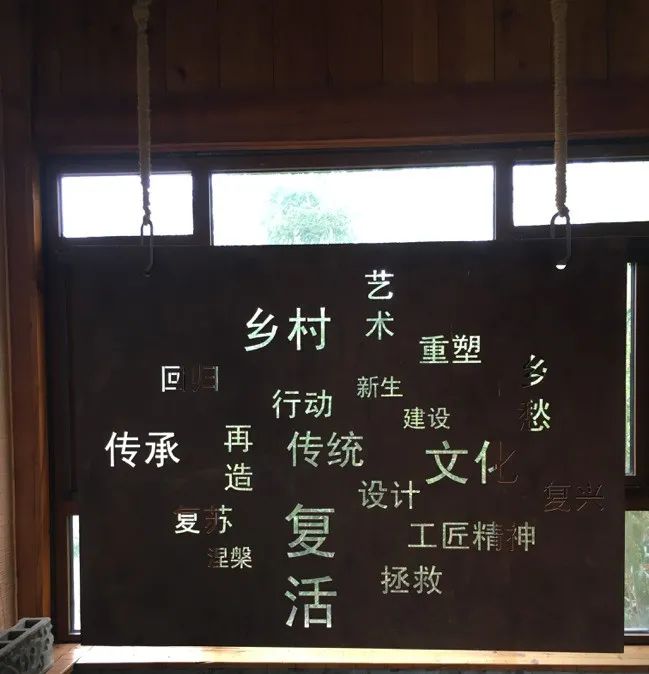 艺术
乡村
重塑
回归
新生
乡愁
行动
建设
传承
再造
传统
文化
设计
复兴
复苏
复活
工匠精神
涅槃
拯救